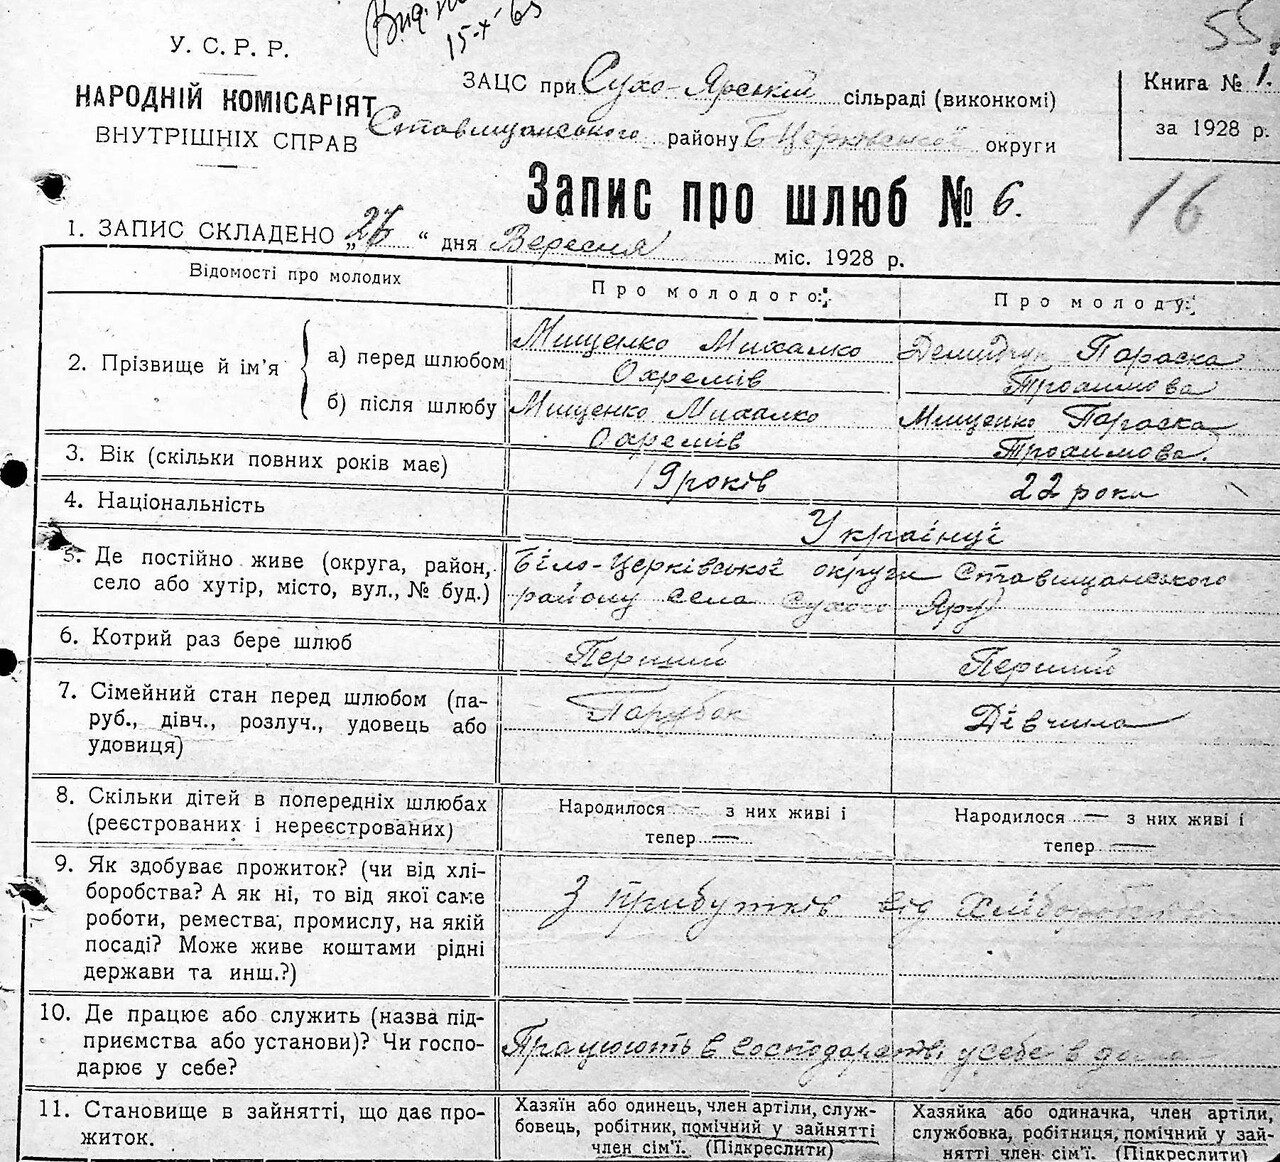 55
15-X-65
У. С. Р. Р.
НАРОДНІЙ КОМІСАРІЯТ
ВНУТРІШНІХ СПРАВ
ЗАЦС при Сухо-Ярській сільраді (виконкомі)
Ставищанського району Б Церківської округи
Книга № 1.
за 1928 р.
Запис про шлюб № 6.
16
1. ЗАПИС СКЛАДЕНО „ “ дня Вересня міс. 1928 р.
Відомості про молодих
Про молодого:
Про молоду:
2. Прізвище й ім'я
а) перед шлюбом
Мищенко Михалко
Охремів
Демидчук Параска
Трохимова
б) після шлюбу
Мищенко Михалко
Охремів
Мищенко Параска
Трохимова.
3. Вік (скільки повних років має)
19 років
22 рока
4. Національність
Українці
5. Де постійно живе (округа, район,
село або хутір, місто, вул., № буд.)
Біло-Церківської округи Ставищанського
району села Сухого Яру
6. Котрий раз бере шлюб
Перший
Перший
7. Сімейний стан перед шлюбом (па-
руб., дівч., розлуч., удовець або
удовиця)
Парубок
Дівчина
8. Скільки дітей в попередніх шлюбах
(реєстрованих і нереєстрованих)
Народилося — з них живі і
тепер —
Народилося — з них живі і
тепер —
9. Як здобуває прожиток? (чи від хлі-
боробства? А як ні, то від якої саме
роботи, ремества, промислу, на якій
посаді? Може живе коштами рідні
держави та инш.?)
З прибутків від хліборобства
10. Де працює або служить (назва під-
приємства або установи)? Чи госпо-
дарює у себе?
Працюють в господарстві у себе в дома
11. Становище в зайнятті, що дає про-
житок.
Хазяїн або одинець, член артілі, служ-
бовець, робітник, помічний у зайнятті
член сім'ї. (Підкреслити)
Хазяйка або одиначка, член артілі,
службовка, робітниця, помічний у зай-
нятті член сім'ї. (Підкреслити)